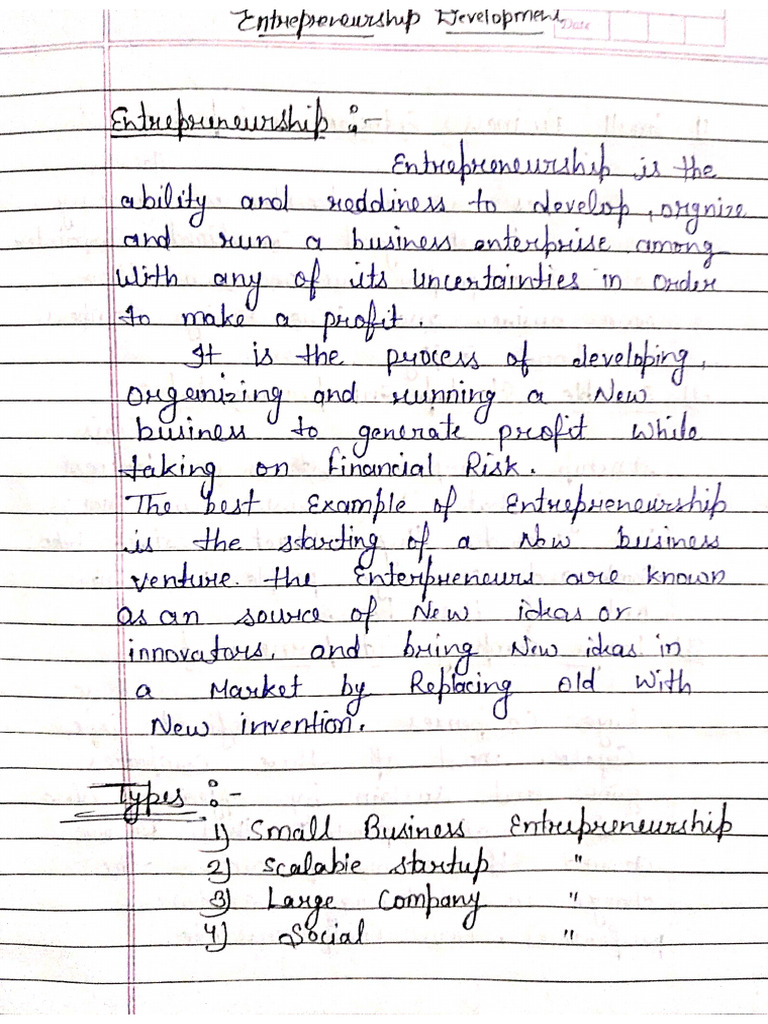 Entrepreneurship Development
Date
Entrepreneurship :-
Entrepreneurship is the
ability and reddiness to develop, orgnize
and run a business enterprise among
With any of its Uncertainties in order
to make a profit.
It is the process of developing,
organizing and running a New
business to generate profit while
taking on financial Risk.
The best Example of Entrepreneurship
is the starting of a New business
venture. the Enterpreneurs are known
as an source of New ideas or
innovators, and bring New ideas in
a Market by Replacing old with
New invention.
Types :-
1) Small Business Entrepreneurship
2) Scalable startup "
3) Large Company "
4) Social "